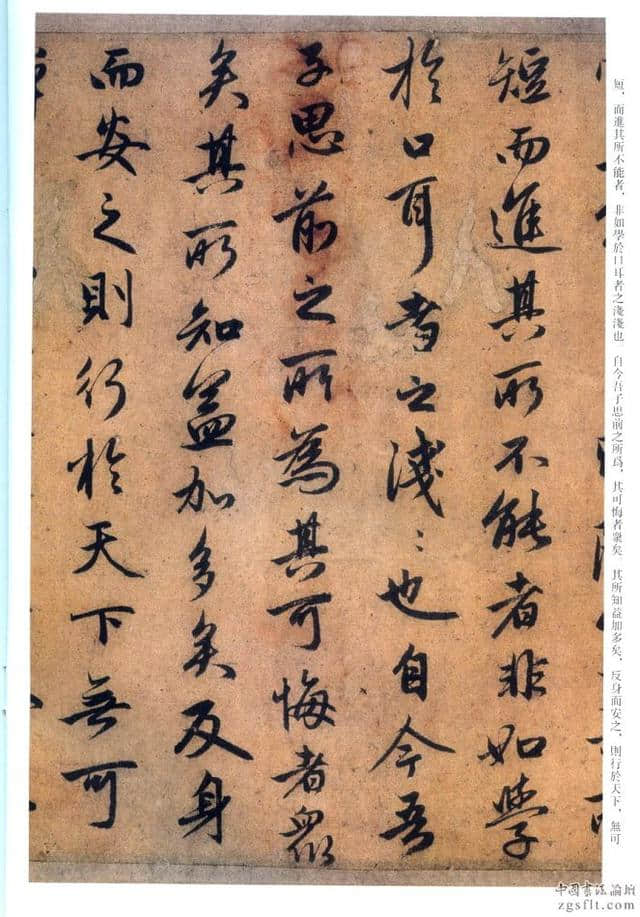 短而進其所不能者非如學
於口耳者之淺〻也自今吾
子思前之所為其可悔者衆
矣其所知益加多矣反身
而安之則行於天下無可
短，而進其所不能者，非如學於口耳者之淺淺也。自今吾子思前之所爲，其可悔者衆矣，其所知益加多矣，反身而安之，則行於天下，無可
中國書法論壇
zgsflt.com